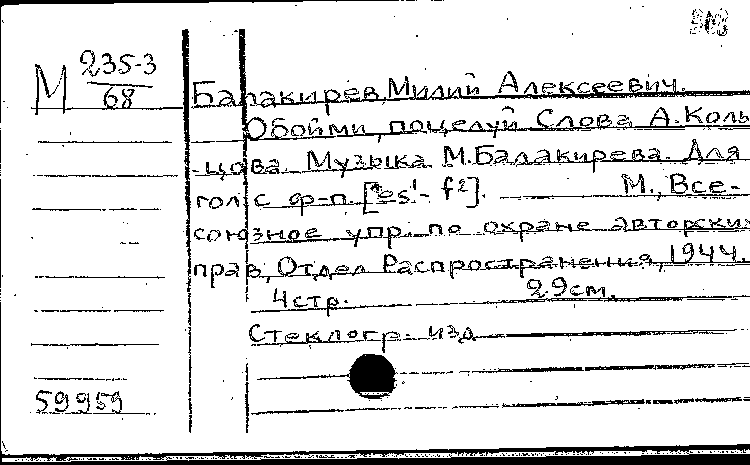 М 235-3
68
Балакирев, Милий Алексеевич.
Обойми, поцелуй Слова А.Коль
-цова. Музыка М.Балакирева. Для
гол. с ф-п. [es¹- f²]. М., Все-
союзное упр. по охране авторских
прав, Отдел Распространения, 1944.
4стр. 29см.
Стеклогр. изд
59959